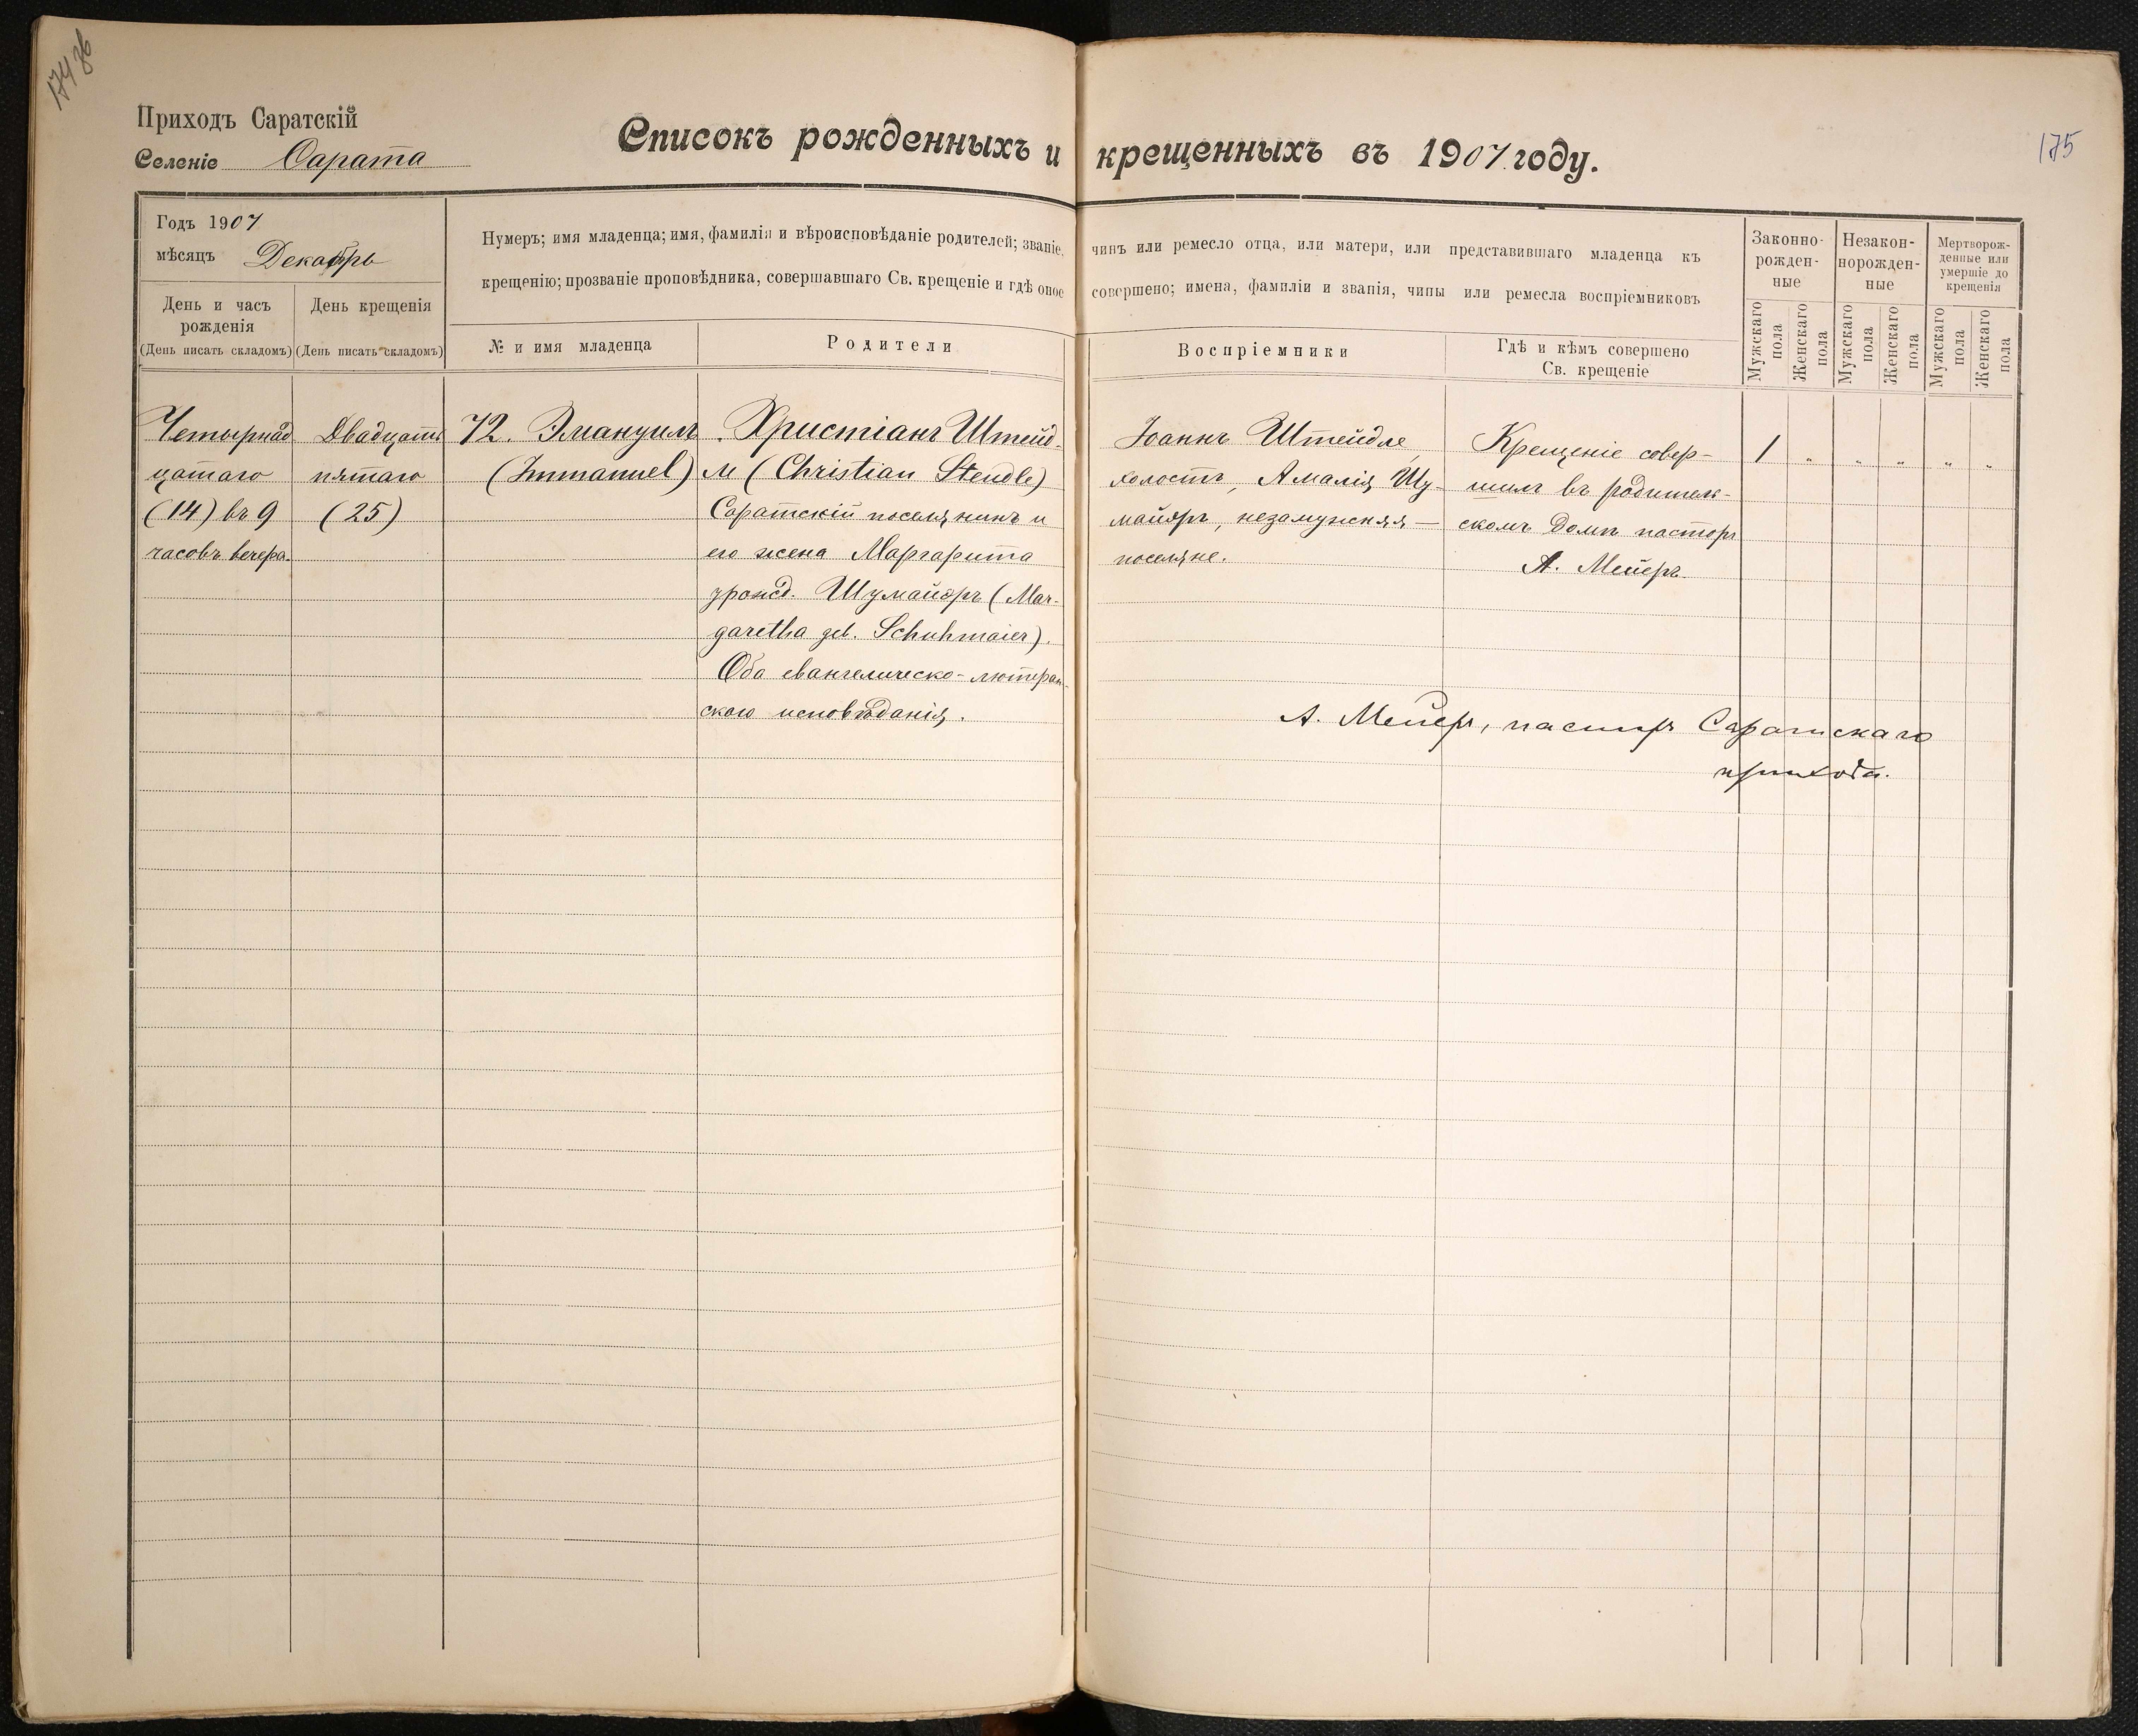 174 об
175
Приходъ Саратскій
Селеніе Сарата
Списокъ рожденныхъ и крещенныхъ въ 1907 году.
Годъ 1907
мѣсяцъ Декабрь
Нумеръ; имя младенца; имя, фамилія и вѣроисповѣданіе родителей; званіе, чинъ или ремесло отца, или матери, или представившаго младенца къ
крещенію; прозваніе проповѣдника, совершавшаго Св. крещеніе и гдѣ оное совершено; имена, фамиліи и званія, чины или ремесла воспріемниковъ
День и часъ
рожденія
(День писать складомъ)
День крещенія
(День писать складомъ)
№ и имя младенца
Родители
Воспріемники
Гдѣ и кѣмъ совершено
Св. крещеніе
Законно-
рожден-
ные
Незакон-
норожден-
ные
Мертворож-
денные или
умершіе до
крещенія
Мужскаго
пола
Женскаго
пола
Мужскаго
пола
Женскаго
пола
Мужскаго
пола
Женскаго
пола
Четырнад
цатаго
(14) въ 9
часовъ вечера.
Двадцать
пятаго
(25)
72. Эмануилъ
(Immanuel)
Христіанъ Штейд-
ле (Christian Steudle)
Саратскій поселянинъ и
его жена Маргарита
урожд. Шумайеръ (Mar-
garetha geb. Schuhmaier).
Оба евангелическо-лютеран-
скаго исповѣданія.
Іоаннъ Штейдле,
холостъ, Амалія Шу-
майеръ, незамужняя —
поселяне.
Крещеніе совер-
шилъ въ родитель-
скомъ домѣ пасторъ
А. Мейеръ.
1 " " " " "
А. Мейеръ, пасторъ Саратскаго
прихода.